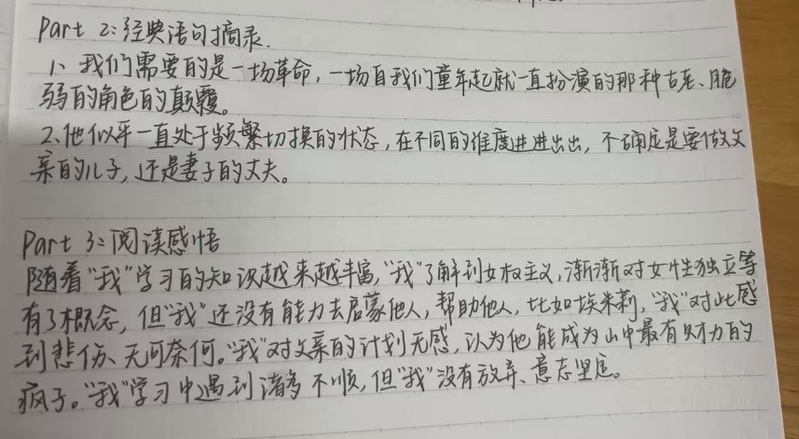 Part 2:经典语句摘录.
1、我们需要的是一场革命,一场自我们童年起就一直扮演的那种古老、脆
弱的角色的颠覆。
2、他似乎一直处于频繁切换的状态,在不同的维度进进出出,不确定是要做父
亲的儿子,还是妻子的丈夫。
Part 3:阅读感悟
随着“我”学习的知识越来越丰富,“我”了解到女权主义,渐渐对女性独立等
有了概念,但“我”还没有能力去启蒙他人,帮助他人,比如埃米莉,“我”对此感
到悲伤、无可奈何。“我”对父亲的计划无感,认为他能成为山中最有财力的
疯子。“我”学习中遇到诸多不顺,但“我”没有放弃、意志坚定。